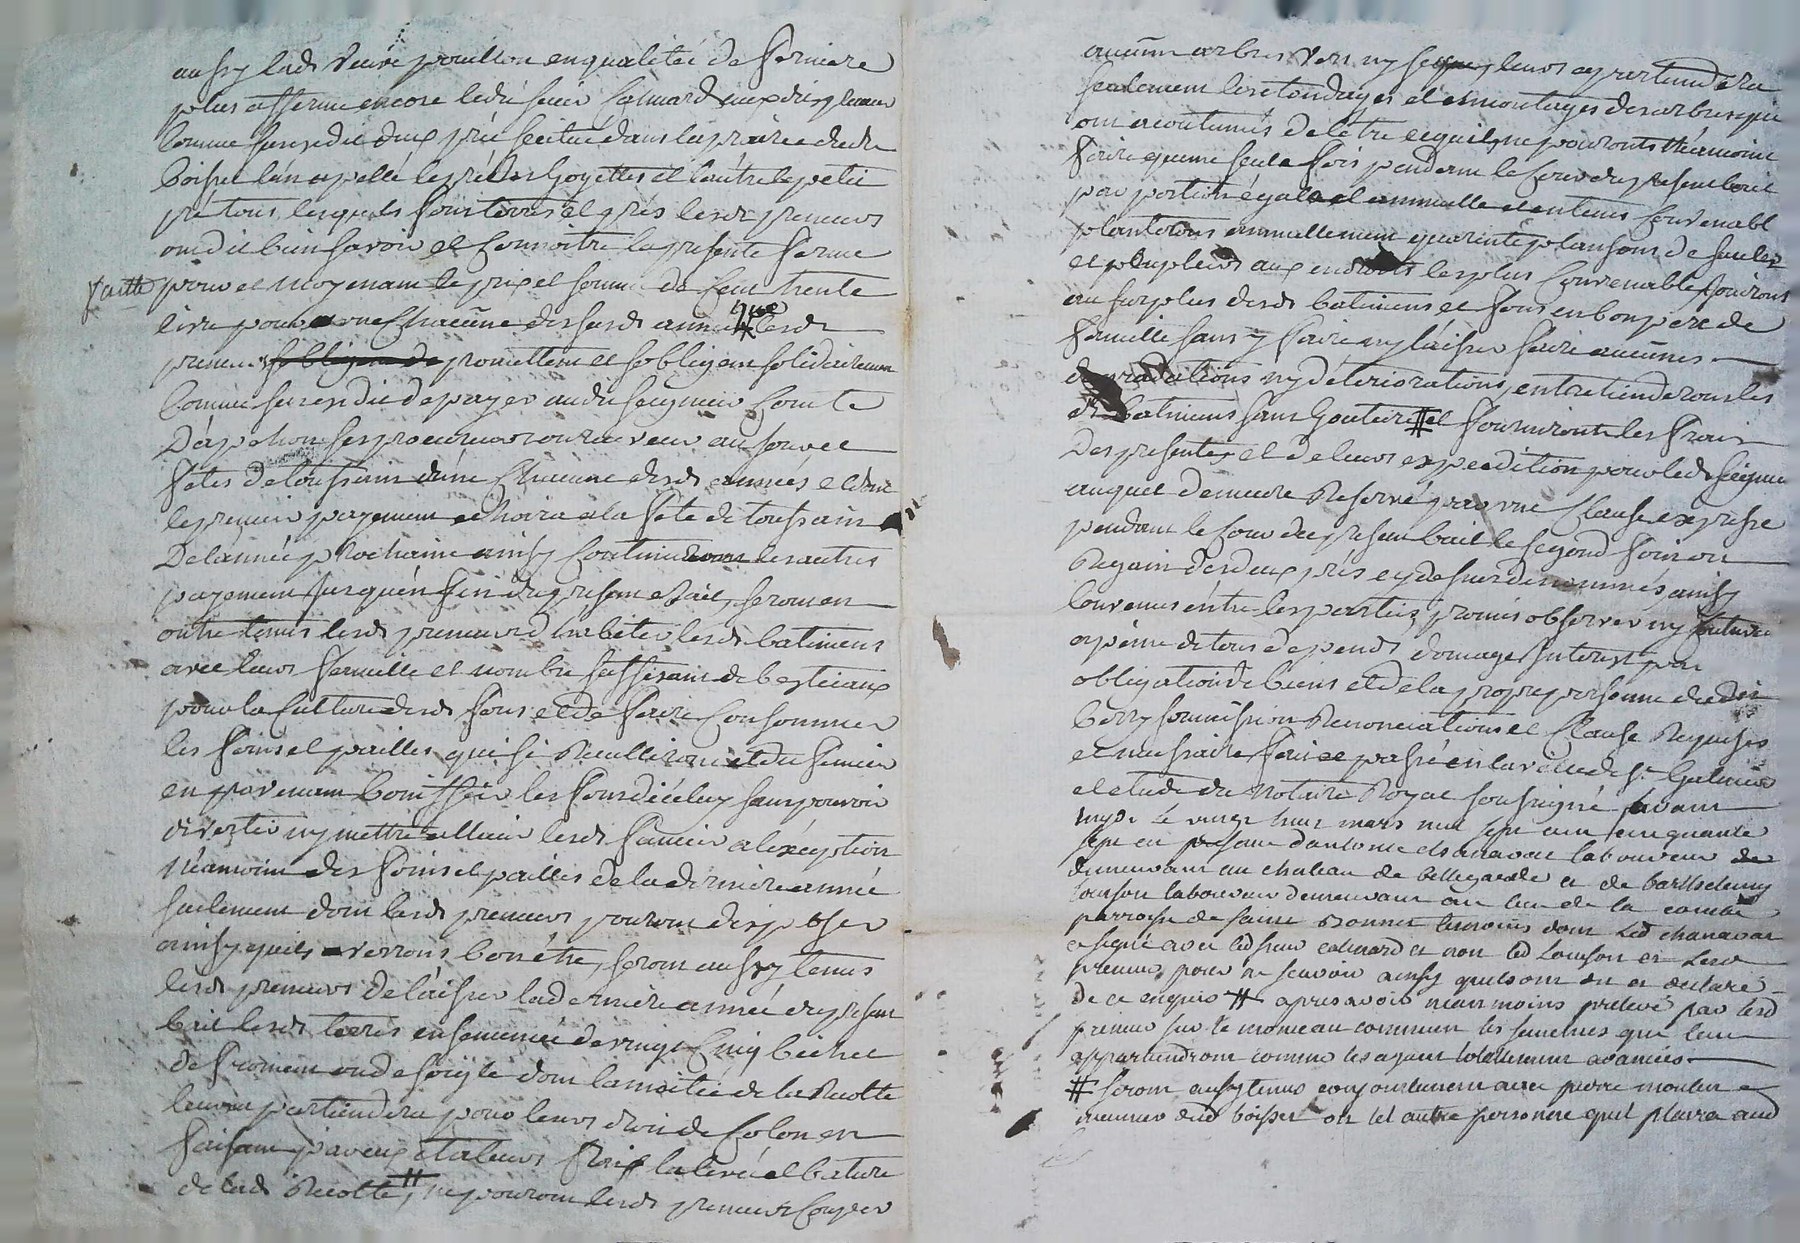 aussy lad. veuve pouillon en qualitéé de fermiere
plus afferme encore ledit sieur Calmard auxdits preneurs
comme sus est dit deux prés scitué dans la prairie dud.
Boisset l'un appellé le pré des Goyettes et l'autre le petit
pré tous lesquels fonds terres et prés lesd. preneurs
ont dit bien savoir et connoitre la presente ferme
faitte pour et moyenant le prix et somme de cent trente
livre pour une chacune desd. année lesd.
preneurs s'obligent de promettent et s'obligent solidairement
comme sus est dit de payer audit seigneur Comte
D'apchon ses procureurs ou receveur au jour et
fêtes de toussaint d'une chacune desd. années et dont
le premier payement echoira a la fête de toussaint
De l'année prochaine ainsy continueront les autres
payement jusqu'en fin du present bail, seront en
outre tenus lesd. preneurs d'habiter lesd. batiments
avec leurs famille et nombre suffisant de bestieaux
pour la culture desd. fons et de faire consommer
les foins et pailles qui se recullieront et du fumier
en provenant bonifier les fonds d'icelluy sans pouvoir
divertir ny mettre allieur lesd. fumier a l'exception
néamoins des foins et pailles de la dernière année
seulement dont lesd. preneurs pouront disposer
ainsy quils verrons bon étre, seront aussy tenus
lesd. preneurs de laisser la derniere année du present
bail lesd. terres ensemencée de vingt cinq bichet
de froment ou de seigle dont la moitié de la recolte
leur partiendera pour leurs droit de colon en
faisant par eux et a leurs frais la levée et bature
de lad. recolte, # ne pouront lesd. preneurs couper
aucuns arbres vers ny secqs, leurs apartiendera
seulement les etondrages et emontages des arbres qui
ont acoutumés de l'etre lequel ne pourronts néamoins
faire qu'une seule fois pendant le cour du present bail
par portion égale et annuelle et en tems convenabl
planterons annuellement quarente plansons de saules
et peupliers aux endroits les plus convenable jouirons
au surplus desd. batimens et fons en bon pere de
famille sans y faire ny laisser faire aucunes
degradations ny déteriorations, entretienderons les
d. batimens sans goutiere # et fourniront les frais
Des presentes et de leurs expeedition pour led. seigneur
auquel demeure reservé par une clause expresse
pendant le cour du present bail le segond foin ou
regain desdeux prés cy dessus denommés, ainsy
convenus entre les parties, promis observer
a peine de tous depends domage interest par
obligation de biens et de la propre personne dud.
berry soumission renonciations et clause requises
et nessaire, fait et passé en la ville de St. Galmier
et etude du notaire Royal soussigné avant
mydi le vingt huit mars mil sept cent cinquante
sept en presence d'antoine chanavat laboureur
demeurant au chateau de bellegarde et de barthelemy
Souson laboureur demeurant au lieu de la combe
parroisse de saint Bonnet temoins dont led chanavat
a signé avec led sieur calmard et non led Souson et lesd
preneurs pour ne scavoir ainsy quils ont dit et declaré
de ce enquis # apres avoir neanmoins prelevé par lesd
preneurs sur le monceau commun les semences qui leur
appartiendront comme les ayant totallement avancées
# seront aussy tenus conjointement avec pierre moulin
meunier dud boisset ou tel autre personne qu'il plaira aud